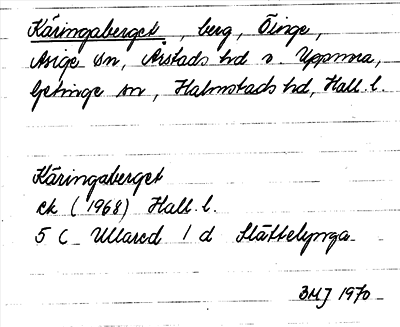 Käringaberget, berg, Öinge,
Asige sn, Årstads hd o. Uppmora,
Getinge sn, Halmstads hd, Hall. l.
Käringaberget
ek (1968) Hall. l.
5 C Ullared 1 d Slättelynga
BMJ 1970